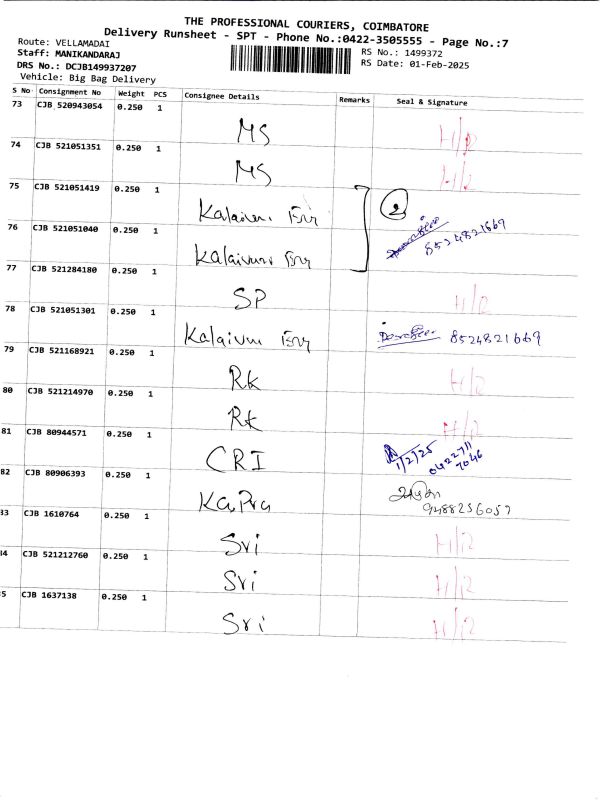 THE PROFESSIONAL COURIERS, COIMBATORE
Delivery Runsheet - SPT - Phone No.:0422-3505555 - Page No.:7
Route: VELLAMADAI
Staff: MANIKANDARAJ
DRS No.: DCJB149937207
Vehicle: Big Bag Delivery
RS No.: 1499372
RS Date: 01-Feb-2025
S No Consignment No Weight PCS Consignee Details Remarks Seal & Signature
73 CJB 520943054 0.250 1 MS
74 CJB 521051351 0.250 1 MS
75 CJB 521051419 0.250 1 Kalaivani 2
76 CJB 521051040 0.250 1 Kalaivani 8524821669
77 CJB 521284180 0.250 1 SP
78 CJB 521051301 0.250 1 Kalaivani 8524821669
79 CJB 521168921 0.250 1 RK
80 CJB 521214970 0.250 1 RK
81 CJB 80944571 0.250 1 CRI 1/2/25 0422711 7046
82 CJB 80906393 0.250 1 Ka Pra 9488256057
33 CJB 1610764 0.250 1 Sri
34 CJB 521212760 0.250 1 Sri
5 CJB 1637138 0.250 1 Sri